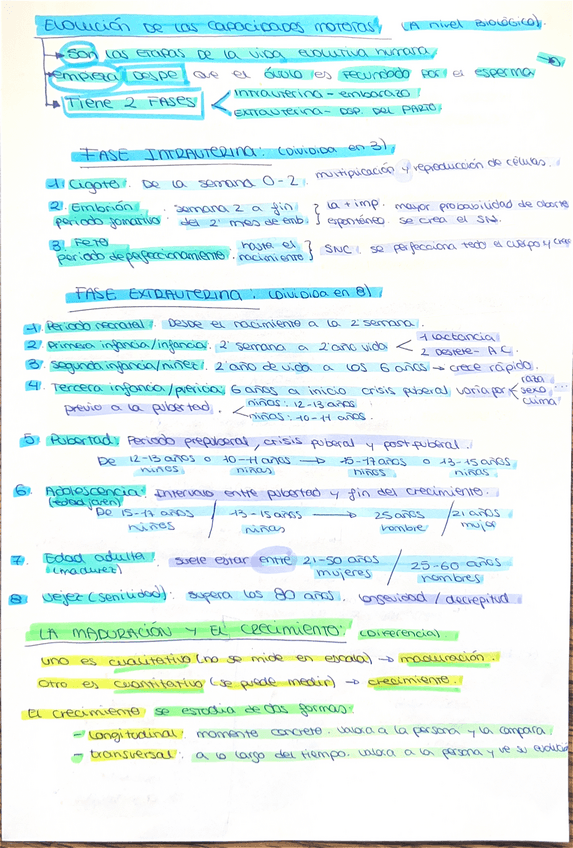 EVOLUCIÓN DE LAS CAPACIDADES MOTORAS (A nivel BIOLÓGICO).
Son las etapas de la vida evolutiva humana
empieza desde que el óvulo es fecundado por el esperma
Tiene 2 FASES
intrauterina - embarazo
EXTRAUTERINA - DSP. DEL PARTO.
FASE INTRAUTERINA: (Dividida en 3)
1. Cigoto. De la semana 0-2. multiplicación y reproducción de células.
2. Embrión. semana 2 a fin } la + imp. mayor probabilidad de aborto
periodo formativo. del 2º mes de emb. espontáneo. se crea el SN.
3. FETO hasta el } SNC. se perfecciona todo el cuerpo y crece
periodo de perfeccionamiento. nacimiento
FASE EXTRAUTERINA: (Dividida en 8)
1. Periodo neonatal. Desde el nacimiento a la 2ª semana.
2. Primera infancia/infancia. 2ª semana a 2º año vida < 1 lactancia
2 Destete - A.C.
3. Segunda infancia/niñez. 2º año de vida a los 6 años → crece rápido.
4. Tercera infancia/puericia. 6 años a inicio crisis puberal. varía por raza
sexo ...
clima
previo a la pubertad. niños: 12-13 años.
niñas: 10-11 años.
5. Pubertad. Periodo prepuberal, crisis puberal y postpuberal.
De 12-13 años o 10-11 años → 15-17 años o 13-15 años.
niños niñas niños niñas
6. Adolescencia: Intervalo entre pubertad y fin del crecimiento.
(edad joven)
De 15-17 años / 13-15 años → 25 años / 21 años
niños niñas hombre mujer
7. Edad adulta. suele estar entre 21-50 años / 25-60 años.
(madurez) mujeres hombres
8. vejez (senilidad): supera los 80 años. longevidad / decrepitud
LA MADURACIÓN Y EL CRECIMIENTO: (Diferencia)
uno es cualitativo (no se mide en escala) → maduración.
Otro es cuantitativo (se puede medir) → crecimiento.
El crecimiento se estudia de dos formas:
- Longitudinal. momento concreto. valora a la persona y la compara.
- transversal: a lo largo del tiempo. valora a la persona y ve su